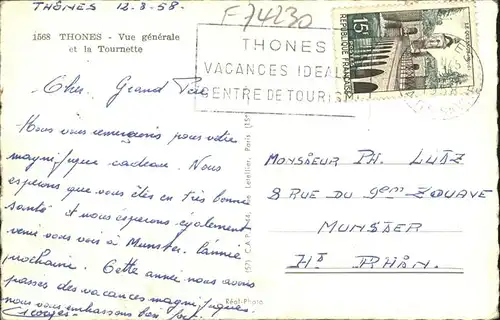 THÔNES 12-8-58.
F74230
1568 THONES - Vue générale
et la Tournette
THONES
VACANCES IDEAL
CENTRE DE TOURISM
15F
REPUBLIQUE FRANÇAISE
Cher Grand Père,
Nous vous remercions pour votre
magnifique cadeau. Nous
espérons que vous êtes en très bonne
santé et nous espérons également
venir vous voir à Munster l'année
prochaine. Cette année nous avons
passés des vacances magnifiques.
nous vous embrassons bien fort.
Georges
MONSIEUR PH. LUTZ
8 RUE DU 9em ZOUAVE
MUNSTER
Ht RHIN.
Réel-Photo